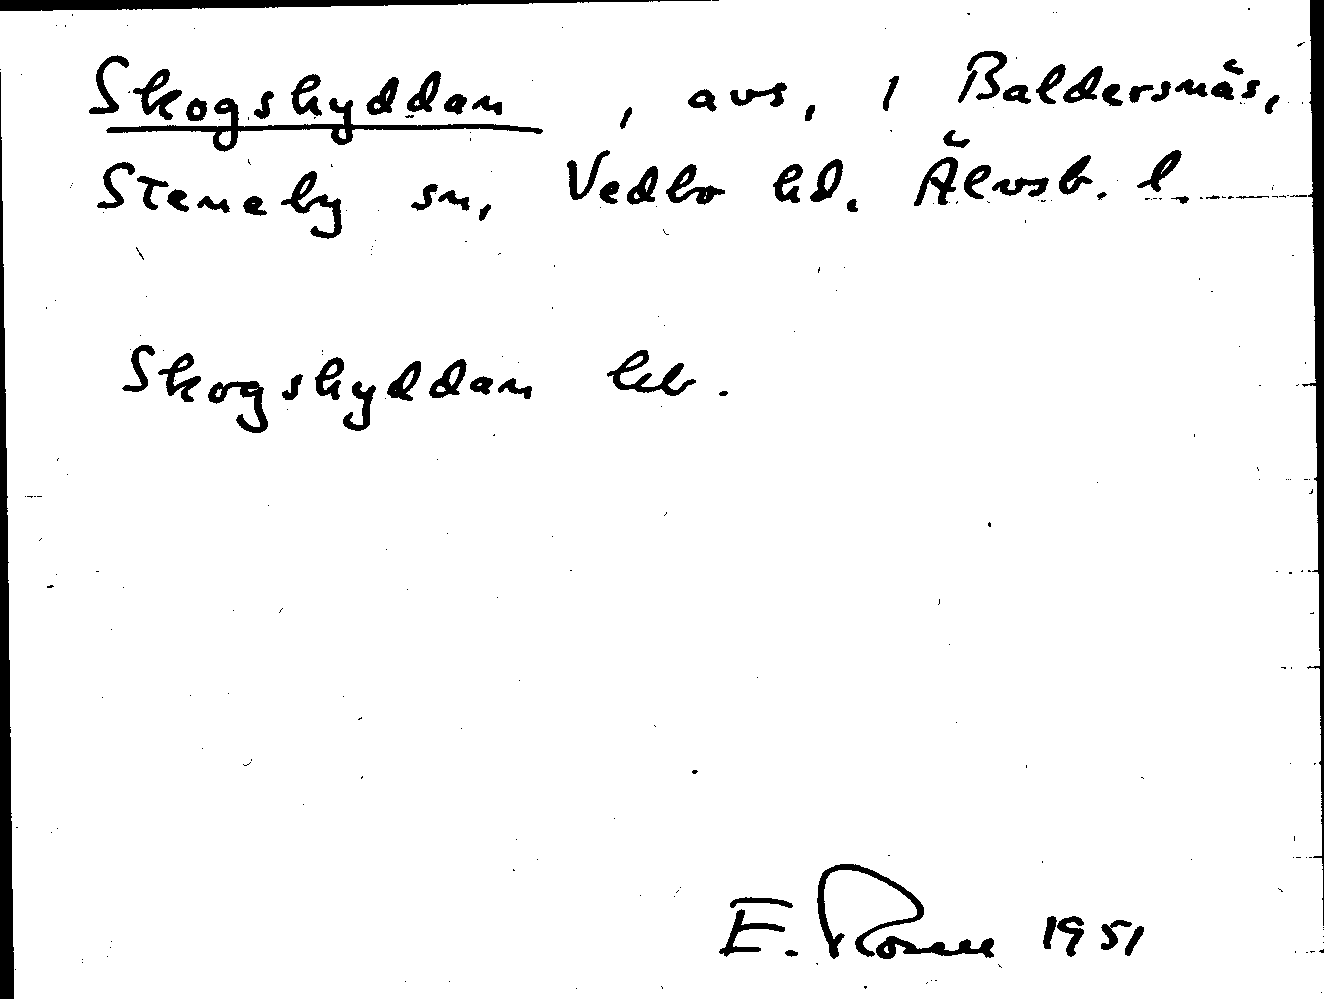 Skogshyddan, avs, i Baldersnäs,
Steneby sn, Vedbo hd. Älvsb. l.
Skogshyddan
E. Rosell 1951